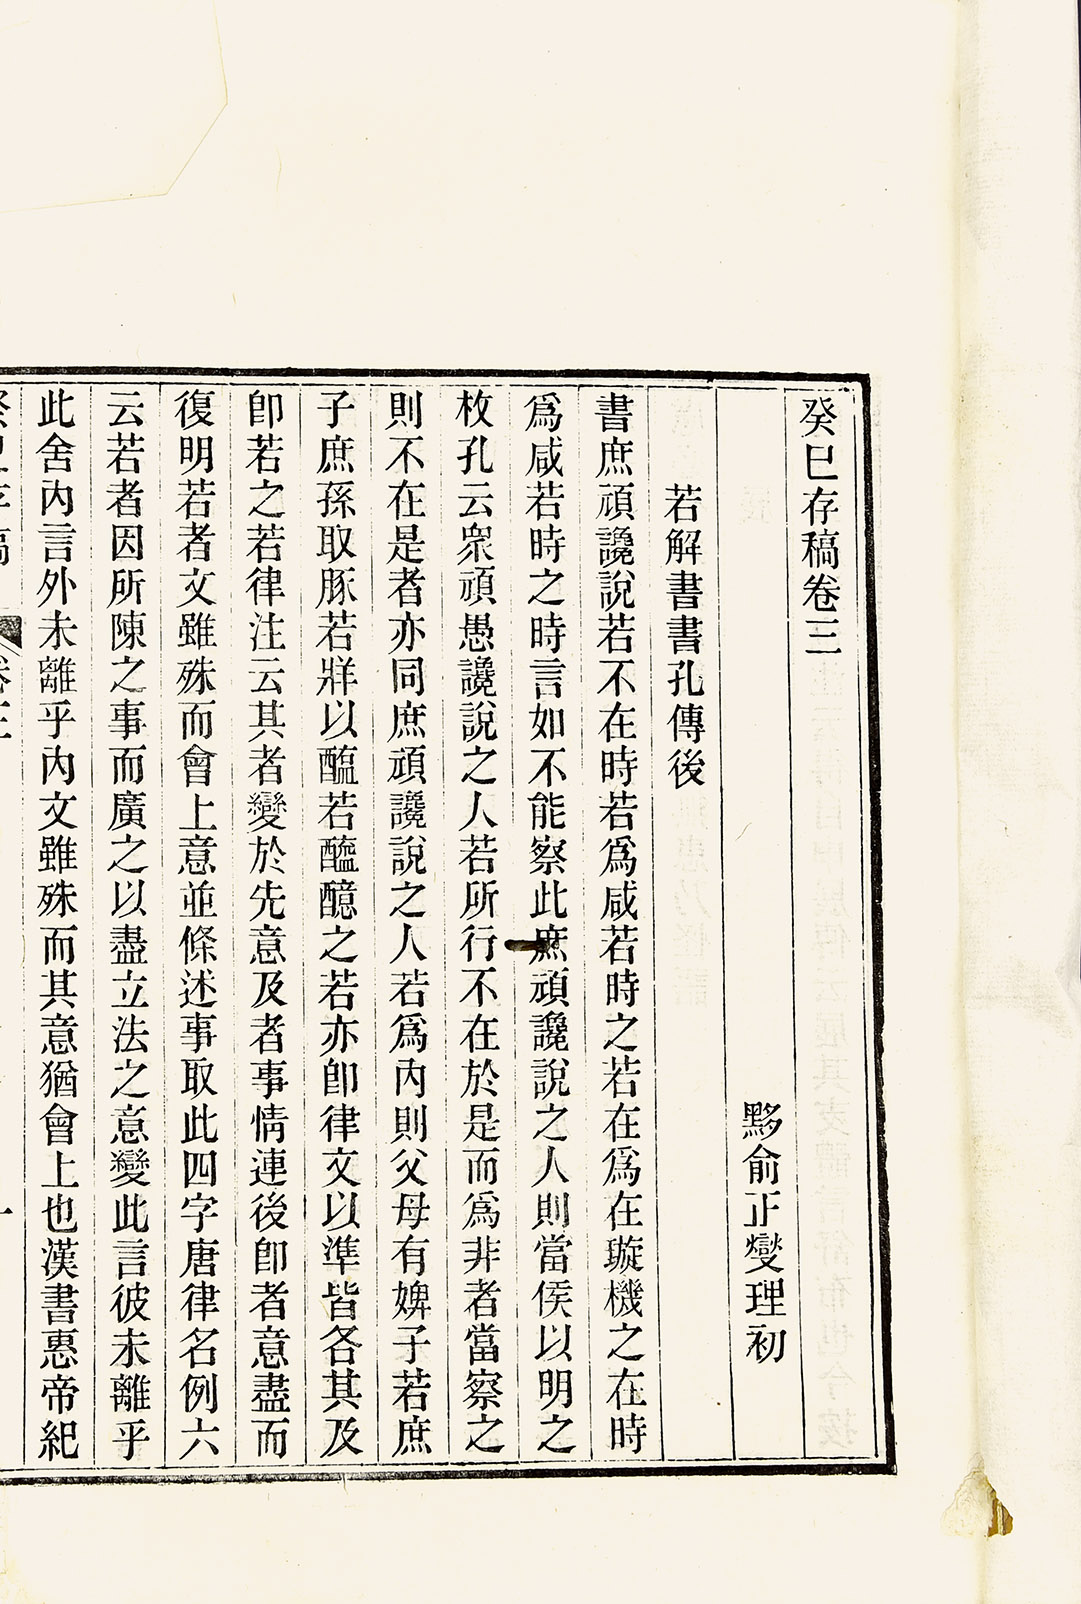 癸巳存稿卷三
黟俞正燮理初
若解書書孔傳後
書庶頑讒說若不在時若爲咸若時之若在爲在璇機之在時
爲咸若時之時言如不能察此庶頑讒說之人則當侯以明之
枚孔云衆頑愚讒說之人若所行不在於是而爲非者當察之
則不在是者亦同庶頑讒說之人若爲內則父母有婢子若庶
子庶孫取豚若牂以醢若醯醷之若亦卽律文以準皆各其及
卽若之若律注云其者變於先意及者事情連後卽者意盡而
復明若者文雖殊而會上意並條述事取此四字唐律名例六
云若者因所陳之事而廣之以盡立法之意變此言彼未離乎
此舍內言外未離乎內文雖殊而其意猶會上也漢書惠帝紀